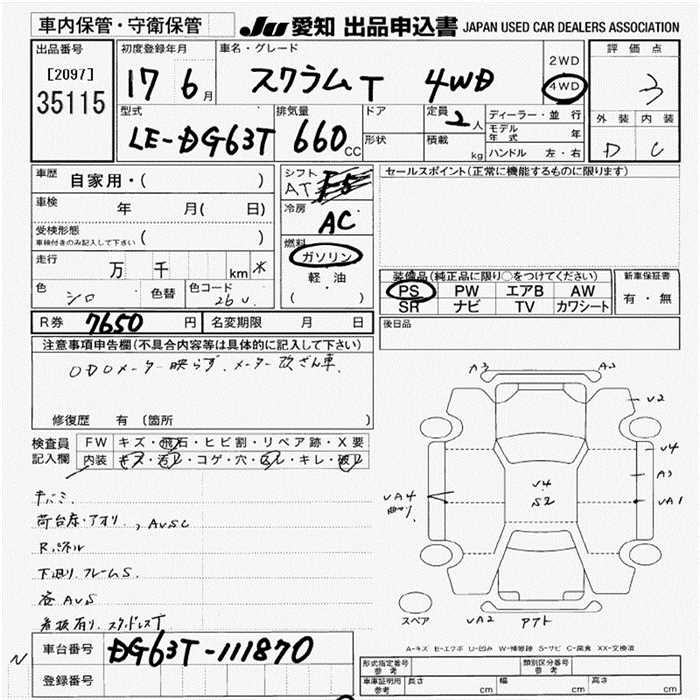 車内保管・守衛保管
JU 愛知 出品申込書 JAPAN USED CAR DEALERS ASSOCIATION
出品番号
[2097]
35115
初度登録年月
17 6月
車名・グレード
スクラムT 4WD
2WD
4WD
評価点
3
型式
LE-DG63T
排気量
660cc
ドア
形状
定員
2人
積載
kg
ディーラー・並行
モデル年式 年
ハンドル 左・右
外装 内装
D C
車歴 自家用・( )
車検 年 月( 日)
受検形態
車検付きのみ記入して下さい ( )
走行 万 千 km ※
色 シロ 色替 色コード 26U
シフト
AT F5
冷房
AC
燃料
ガソリン
軽・油
( )
セールスポイント(正常に機能するものに限ります)
装備品(純正品に限り○をつけてください)
PS PW エアB AW
SR ナビ TV カワシート
新車保証書
有・無
R券 7650円 名変期限 月 日
後日品
注意事項申告欄(不具合内容等は具体的に記入して下さい)
ODOメーター映らず、メーター改ざん車、
修復歴 有 (箇所 )
検査員記入欄
FW キズ・飛石・ヒビ割・リペア跡・X要
内装 キズ・汚レ・コゲ・穴・スレ・キレ・破レ
荷台床・アオリ、AVSC
Rパネル
下廻り、フレームS、
AVS
看板有り、スタッドレスT
A3 A2
V2
V4
A3
VA1
V4
S2
VA4
曲り
VA2 アナト
スペア
A-キズ E-エクボ U-凹み W-補修跡 S-サビ C-腐食 XX-交換済
N
車台番号 DG63T-111870
登録番号
形式指定番号
参考
類別区分番号
参考
車庫証明用
参考
長さ cm 幅 cm 高さ cm